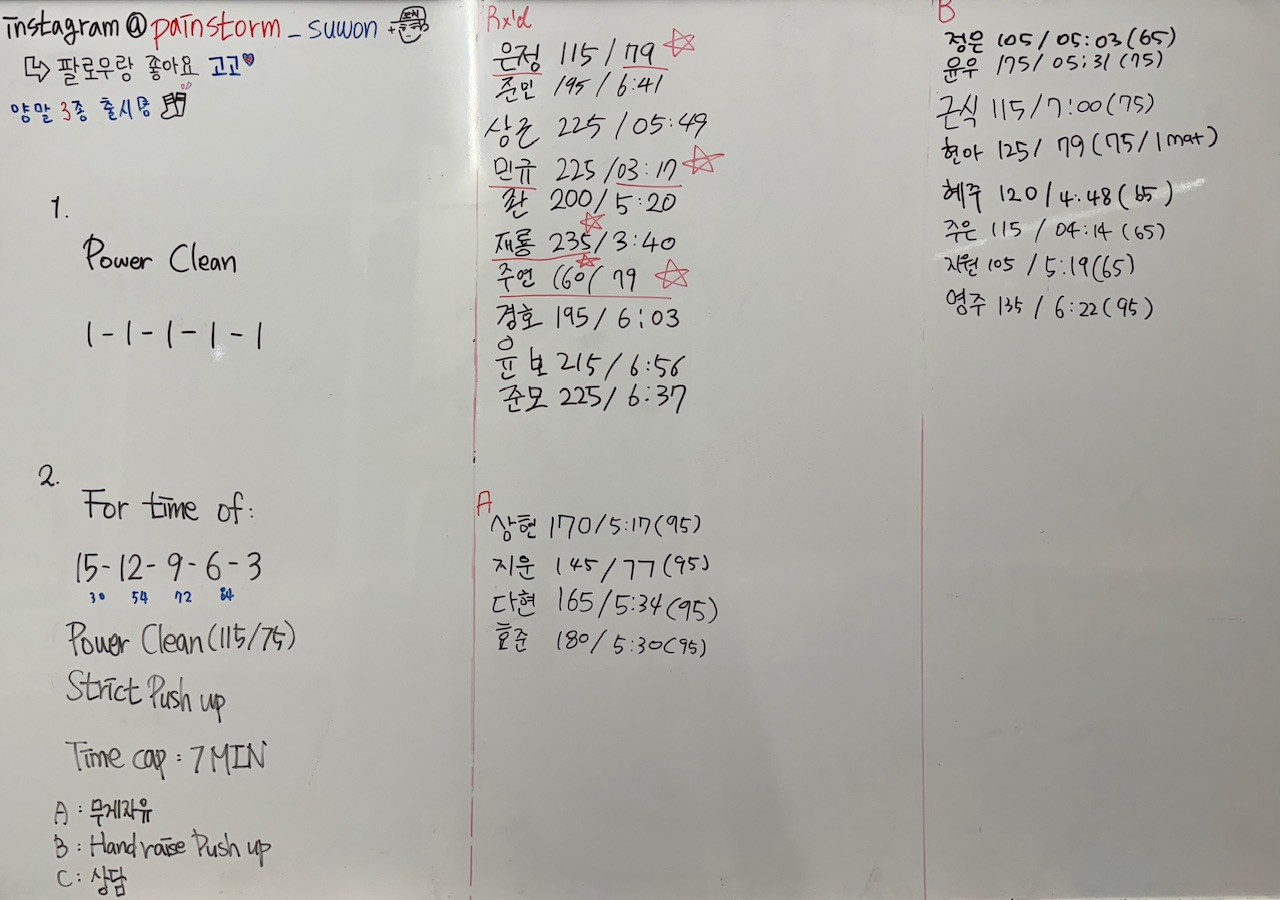 instagram@painstorm_suwon
팔로우랑 좋아요 고고
양말 3종 출시중
1.
Power Clean
1-1-1-1-1
2.
For time of:
15-12-9-6-3
30 54 72 84
Power Clean(115/75)
Strict Push up
Time cap : 7MIN
A : 무게자유
B : Hand raise Push up
C : 상담
Rx'd
은정 115 / 79
준민 195 / 6:41
상근 225 / 05:49
민규 225 / 03:17
환 200 / 5:20
재룡 235 / 3:40
주연 160 / 79
경호 195 / 6:03
윤보 215 / 6:56
준모 225 / 6:37
A
상현 170/5:17(95)
지운 145/77(95)
다현 165/5:34(95)
호준 180/5:30(95)
B
정은 105/05:03(65)
윤우 175/05:31(75)
근식 115/7:00(75)
현아 125/ 79(75/1mat)
혜주 120/4:48(65)
주은 115 / 04:14 (65)
지원 105 / 5:19(65)
영주 135 / 6:22(95)